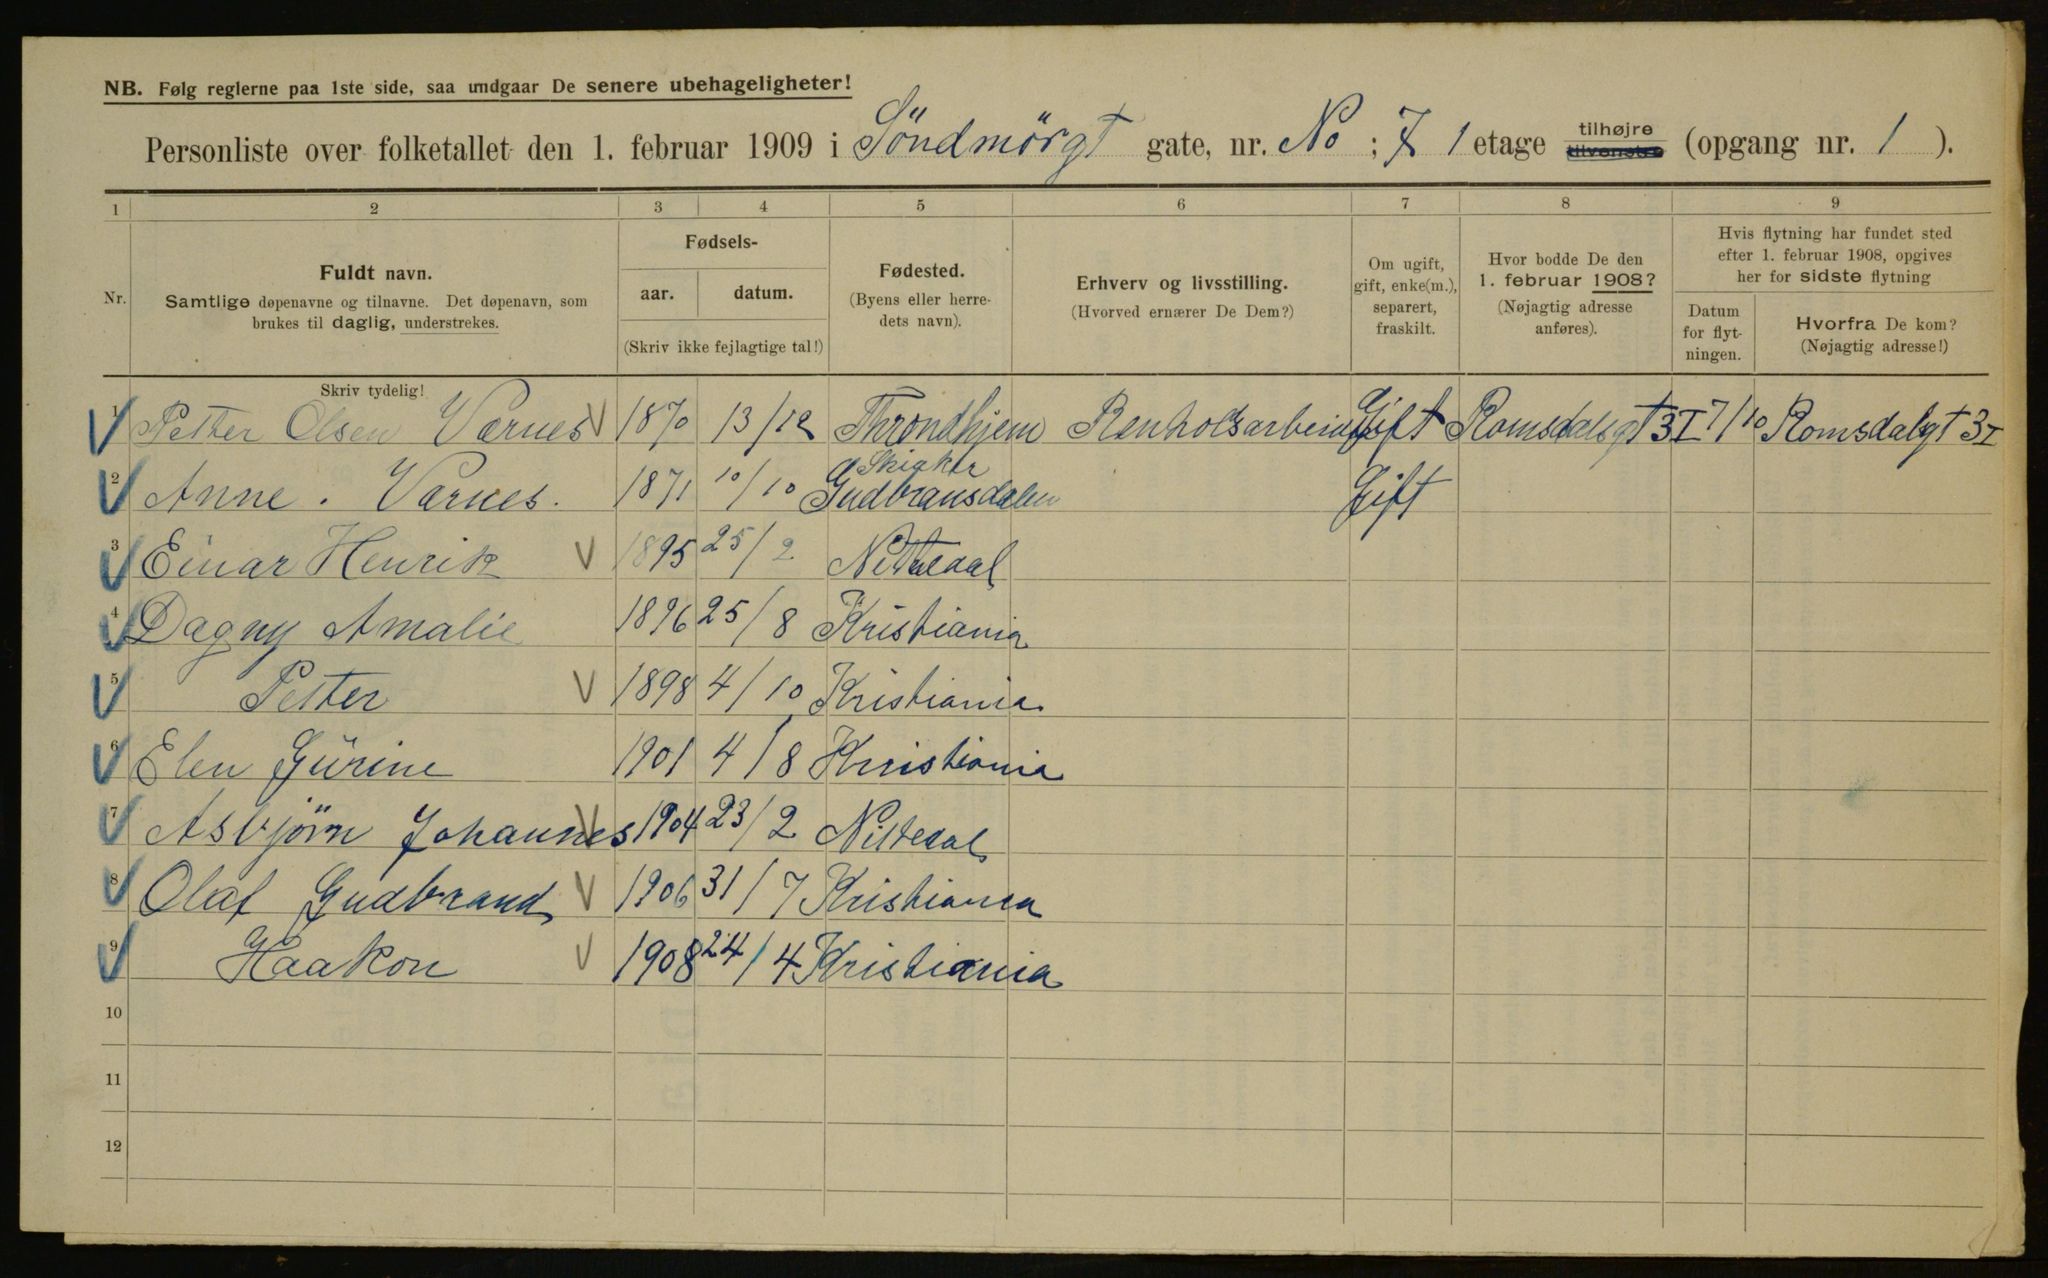 NB. Følg reglerne paa 1ste side, saa undgaar De senere ubehageligheter!
Personliste over folketallet den 1. februar 1909 i Söndmörgt gate, nr. No ; 7 1 etage tilhøjre tilvenstre (opgang nr. 1 ).
1 2 3 4 5 6 7 8 9
Nr.
Fuldt navn.
Samtlige døpenavne og tilnavne. Det døpenavn, som
brukes til daglig, understrekes.
Fødsels-
aar. datum.
(Skriv ikke fejlagtige tal!)
Fødested.
(Byens eller herre-
dets navn).
Erhverv og livsstilling.
(Hvorved ernærer De Dem?)
Om ugift,
gift, enke(m.),
separert,
fraskilt.
Hvor bodde De den
1. februar 1908?
(Nøjagtig adresse
anføres).
Hvis flytning har fundet sted
efter 1. februar 1908, opgives
her for sidste flytning
Datum
for flyt-
ningen.
Hvorfra De kom?
(Nøjagtig adresse!)
Skriv tydelig!
1 Petter Olsen Værnes 1870 13/12 Throndhjem Gift Romsdalsgt 3 I 7/10 Romsdalgt 3 I
2 Anne . Værnes. 1871 10/10 Skiaker Gudbransdalen Gift
3 Einar Henrik 1895 25/2 Nittedal
4 Dagny Amalie 1896 25/8 Kristiania
5 Petter 1898 4/10 Kristiania
6 Elen Gürine 1901 4/8 Kristiania
7 Asbjörn Johannes 1904 23/2 Nittedal
8 Olaf Gudbrand 1906 31/7 Kristiania
9 Haakon 1908 24/4 Kristiania
10
11
12